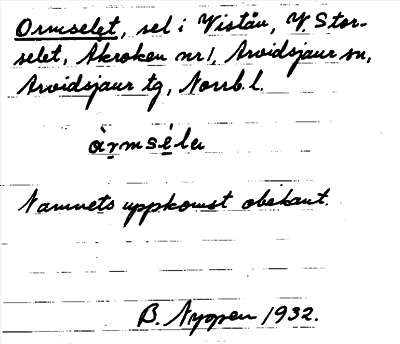 Ormselet, sel i Vistån, V. Stor-
selet, Åkroken nr 1, Arvidsjaur sn,
Arvidsjaur tg, Norrb. l.
ὰr̥msé̥la
Namnets uppkomst obekant.
B. Nyopen 1932.